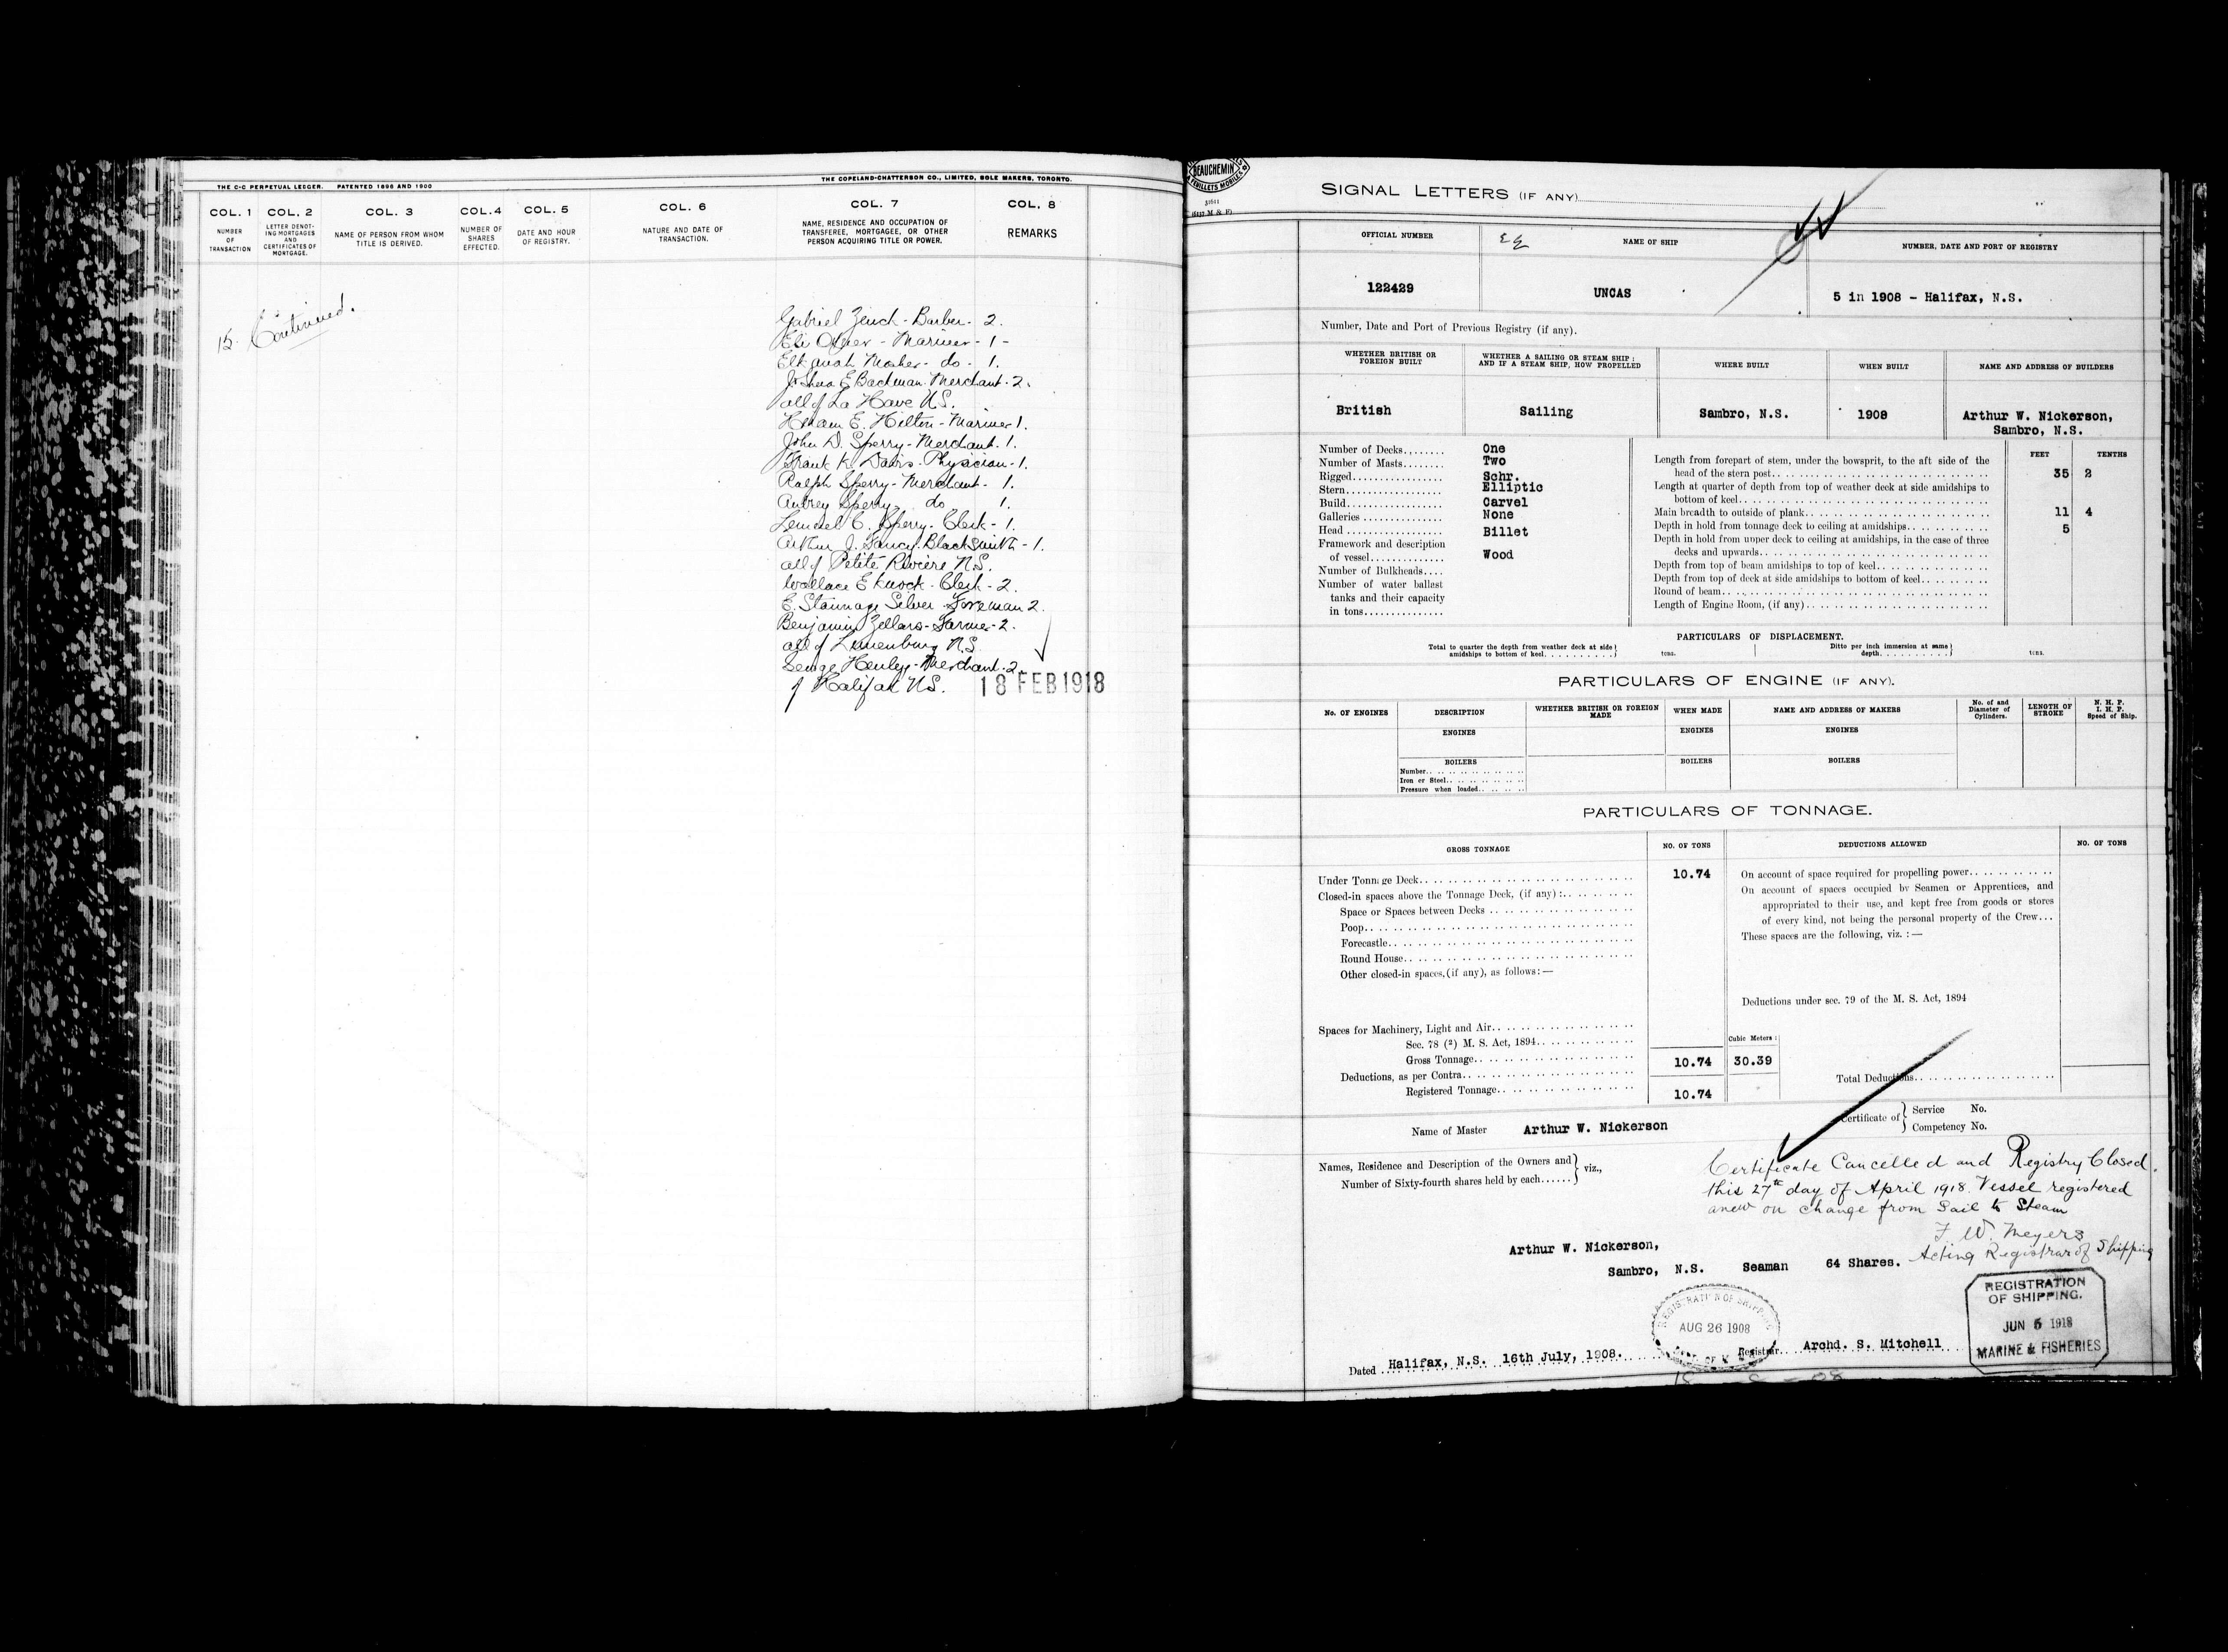 THE C-C PERPETUAL LEDGER. PATENTED 1896 AND 1900
THE COPELAND-CHATTERSON CO., LIMITED, SOLE MAKERS, TORONTO.
COL. 1 COL. 2 COL. 3 COL. 4 COL. 5 COL. 6 COL. 7 COL. 8
NUMBER OF TRANSACTION
LETTER DENOTING MORTGAGES AND CERTIFICATES OF MORTGAGE.
NAME OF PERSON FROM WHOM TITLE IS DERIVED.
NUMBER OF SHARES EFFECTED.
DATE AND HOUR OF REGISTRY.
NATURE AND DATE OF TRANSACTION.
NAME, RESIDENCE AND OCCUPATION OF TRANSFEREE, MORTGAGEE, OR OTHER PERSON ACQUIRING TITLE OR POWER.
REMARKS
15. Continued.
Gabriel Zinck - Barber - 2.
Eli - Mariner - 1 -
Elkanah Mosher - do - 1.
Joshua E Backman. Merchant. 2.
all of La Have N.S.
Hiram E. Hilton - Mariner 1.
John D. Sperry - Merchant. 1.
Frank K. Davis. Physician - 1.
Ralph Sperry - Merchant - 1.
Aubrey Sperry do 1.
Lemuel C. Sperry - Clerk - 1.
Arthur J. Fancy. Blacksmith - 1.
all of Petite Riviere N.S.
Wallace E Knock - Clerk - 2.
E. Stannage Selver - Foreman 2.
Benjamin Zellars - Farmer - 2.
all of Lunenburg N.S.
George Henley - Merchant. 2
of Halifax N.S.
18 FEB 1918
BEAUCHEMIN
FEUILLETS MOBILES
SIGNAL LETTERS (IF ANY)
OFFICIAL NUMBER
NAME OF SHIP
NUMBER, DATE AND PORT OF REGISTRY
122429
UNCAS
5 in 1908 - Halifax, N.S.
Number, Date and Port of Previous Registry (if any).
WHETHER BRITISH OR FOREIGN BUILT
WHETHER A SAILING OR STEAM SHIP : AND IF A STEAM SHIP, HOW PROPELLED
WHERE BUILT
WHEN BUILT
NAME AND ADDRESS OF BUILDERS
British
Sailing
Sambro, N.S.
1908
Arthur W. Nickerson,
Sambro, N.S.
Number of Decks........ One
Number of Masts........ Two
Rigged................. Schr.
Stern.................. Elliptic
Build.................. Carvel
Galleries .............. None
Head .................. Billet
Framework and description
of vessel.............. Wood
Number of Bulkheads....
Number of water ballast
tanks and their capacity
in tons...............
FEET TENTHS
Length from forepart of stem, under the bowsprit, to the aft side of the
head of the stern post.. 35 2
Length at quarter of depth from top of weather deck at side amidships to
bottom of keel..
Main breadth to outside of plank.. 11 4
Depth in hold from tonnage deck to ceiling at amidships.. 5
Depth in hold from upper deck to ceiling at amidships, in the case of three
decks and upwards..
Depth from top of beam amidships to top of keel..
Depth from top of deck at side amidships to bottom of keel..
Round of beam..
Length of Engine Room, (if any)..
PARTICULARS OF DISPLACEMENT.
Total to quarter the depth from weather deck at side amidships to bottom of keel.......... tons.
Ditto per inch immersion at same depth........... tons.
PARTICULARS OF ENGINE (IF ANY).
No. OF ENGINES
DESCRIPTION
WHETHER BRITISH OR FOREIGN MADE
WHEN MADE
NAME AND ADDRESS OF MAKERS
No. of and Diameter of Cylinders.
LENGTH OF STROKE
N. H. P.
I. H. P.
Speed of Ship.
ENGINES ENGINES ENGINES
BOILERS BOILERS BOILERS
Number..
Iron or Steel..
Pressure when loaded..
PARTICULARS OF TONNAGE.
GROSS TONNAGE
NO. OF TONS
DEDUCTIONS ALLOWED
NO. OF TONS
Under Tonnage Deck.. 10.74
Closed-in spaces above the Tonnage Deck, (if any) :..
Space or Spaces between Decks ..
Poop..
Forecastle..
Round House..
Other closed-in spaces, (if any), as follows: —
Spaces for Machinery, Light and Air..
Sec. 78 (2) M. S. Act, 1894..
Gross Tonnage.. 10.74
Cubic Meters :
30.39
Deductions, as per Contra..
Registered Tonnage.. 10.74
On account of space required for propelling power..
On account of spaces occupied by Seamen or Apprentices, and
appropriated to their use, and kept free from goods or stores
of every kind, not being the personal property of the Crew...
These spaces are the following, viz. : —
Deductions under sec. 79 of the M. S. Act, 1894
Total Deductions..
Name of Master Arthur W. Nickerson
Certificate of { Service No.
Competency No.
Names, Residence and Description of the Owners and
Number of Sixty-fourth shares held by each...... } viz.,
Certificate Cancelled and Registry Closed.
this 27th day of April 1918. Vessel registered
anew on change from Sail to Steam
F. W. Meyers
Acting Registrar of Shipping
Arthur W. Nickerson,
Sambro, N.S. Seaman 64 Shares.
REGISTRATION OF SHIPPING
AUG 26 1908
REGISTRATION
OF SHIPPING.
JUN 5 1918
MARINE & FISHERIES
Dated Halifax, N.S. 16th July, 1908.
Registrar. Archd. S. Mitchell